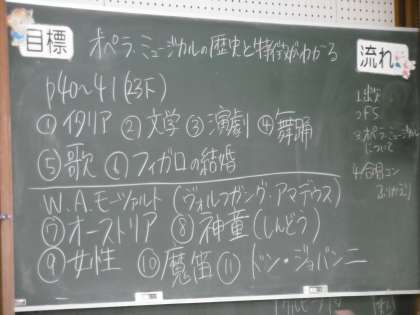 目標
オペラ・ミュージカルの歴史と特徴がわかる
p40〜41(23下)
①イタリア ②文学 ③演劇 ④舞踊
⑤歌 ⑥フィガロの結婚
W.A.モーツァルト(ヴォルフガング・アマデウス)
⑦オーストリア ⑧神童(しんどう)
⑨女性 ⑩魔笛 ⑪ドン・ジョバンニ
流れ
3.オペラ・ミュージカル
について
4.合唱コン
ふりかえり